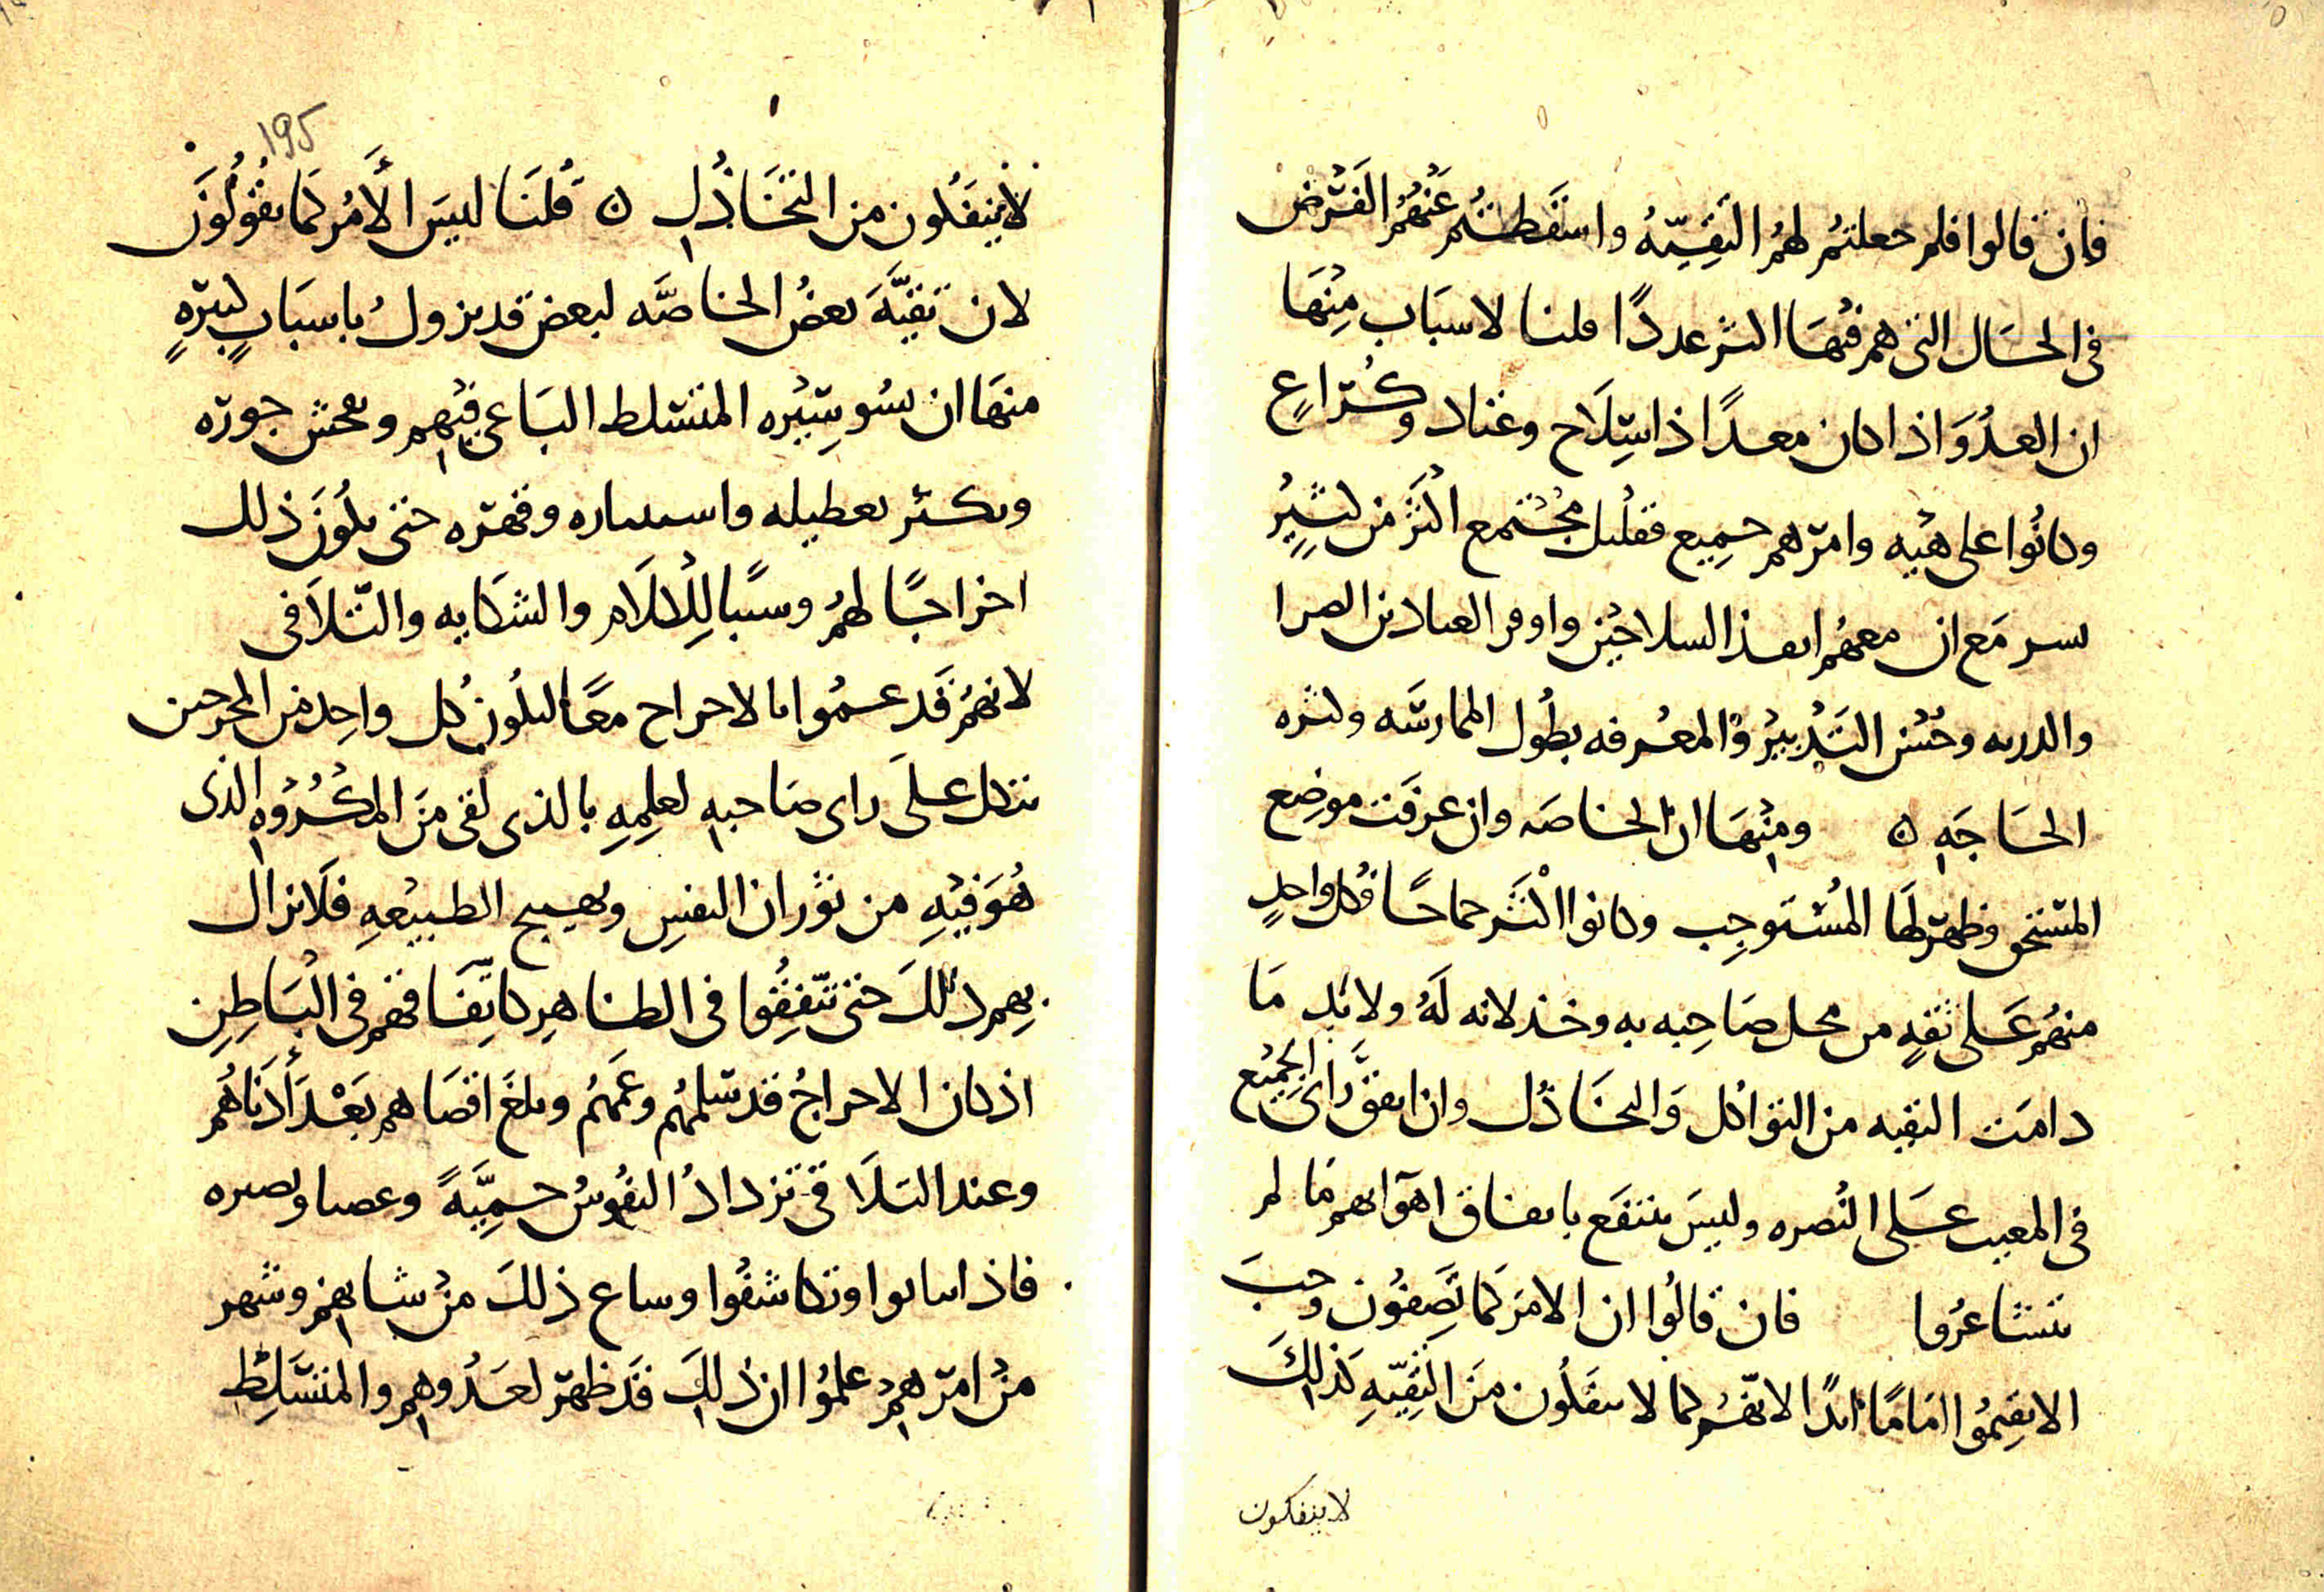 فان قالوا فلم جعلتم لهم التقيّة واسقطتم عنهم الفرض
في الحال التي هم فيها اكثر عددًا قلنا لاسباب منها
ان العدوّ اذا كان معدًا ذا سِلاح وعتاد وكُراعٍ
وكانُوا على هيئة وامرهم جميع فقليل مجتمع اكثر من كثيرٍ
نشر مع ان معهم انفذ السلاحين واوفر العتادين الضرا
والدربه وحُسْن التدبير والمعرفه بطُول الممارسَه وكثره
الحاجَه ٥ ومنها ان الخاصه وان عرفت موضع
المستحق وظهر لها المُستوجِب وكانوا اكثر جماحًا فكل واحدٍ
منهم على ثقةٍ من محل صاحِبه به وخذلانه لَهُ ولابُد مَا
دامَت التقيه من التواكل والتخاذُل وان اتفق راى الجميع
في المغيب عَلى النُصره وليسَ ينتفع باتفاق اهوايهم مَا لم
يتشاعرُوا فان قالُوا ان الامر كما تَصِفُون وجبَ
الا يقيمُوا امَامًا ابدًا لانّهم كما لا ينفكون من التقيّهِ كذلِكَ
لا ينفكون
195
لا يَنفكون من التخاذُل ٥ قُلنا ليسَ الأمر كما يقُولُون
لان تقيَّة بعض الخاصَّه لبعض قد يزولُ باسبابٍ كثيرهٍ
منها ان يسُو سِيَره المتسلط الباغي فيهم ويفحش جوره
ويكثر تعطيله واستيثاره وقهره حتى يكُون ذلك
اخراجًا لهُم وسببًا لِلكلام والشكايه والتلاقى
لانهُم قد عمُوا بالاحراج معًا ليكُون كل واحِد من المحرجين
يتكل على راى صاحبهِ لعِلمِهِ بالذى لقى مِنَ المكرُوهِ الذى
هُوَ فيْهِ من ثوَران النفسِ وتهييج الطبيْعهِ فلا يزال
بهم ذلكَ حتى يتّفِقُوا في الظاهِر كاتِّفاقهم في البَاطِنِ
اذ كان الاحراجُ قد شملهُم وعَمَّهُم وبلغَ اقصاهم بَعْدَ أَدنَاهُم
وعند التلاقى تزدادُ النفُوسُ حميَّةً وغضبا وبصيره
فاذا تباثوا وتكاشفُوا وشاع ذلكَ من شانهِم وشهر
من امرهِم علمُوا ان ذلكَ قد ظهر لعَدُوهم والمتسَلِّط